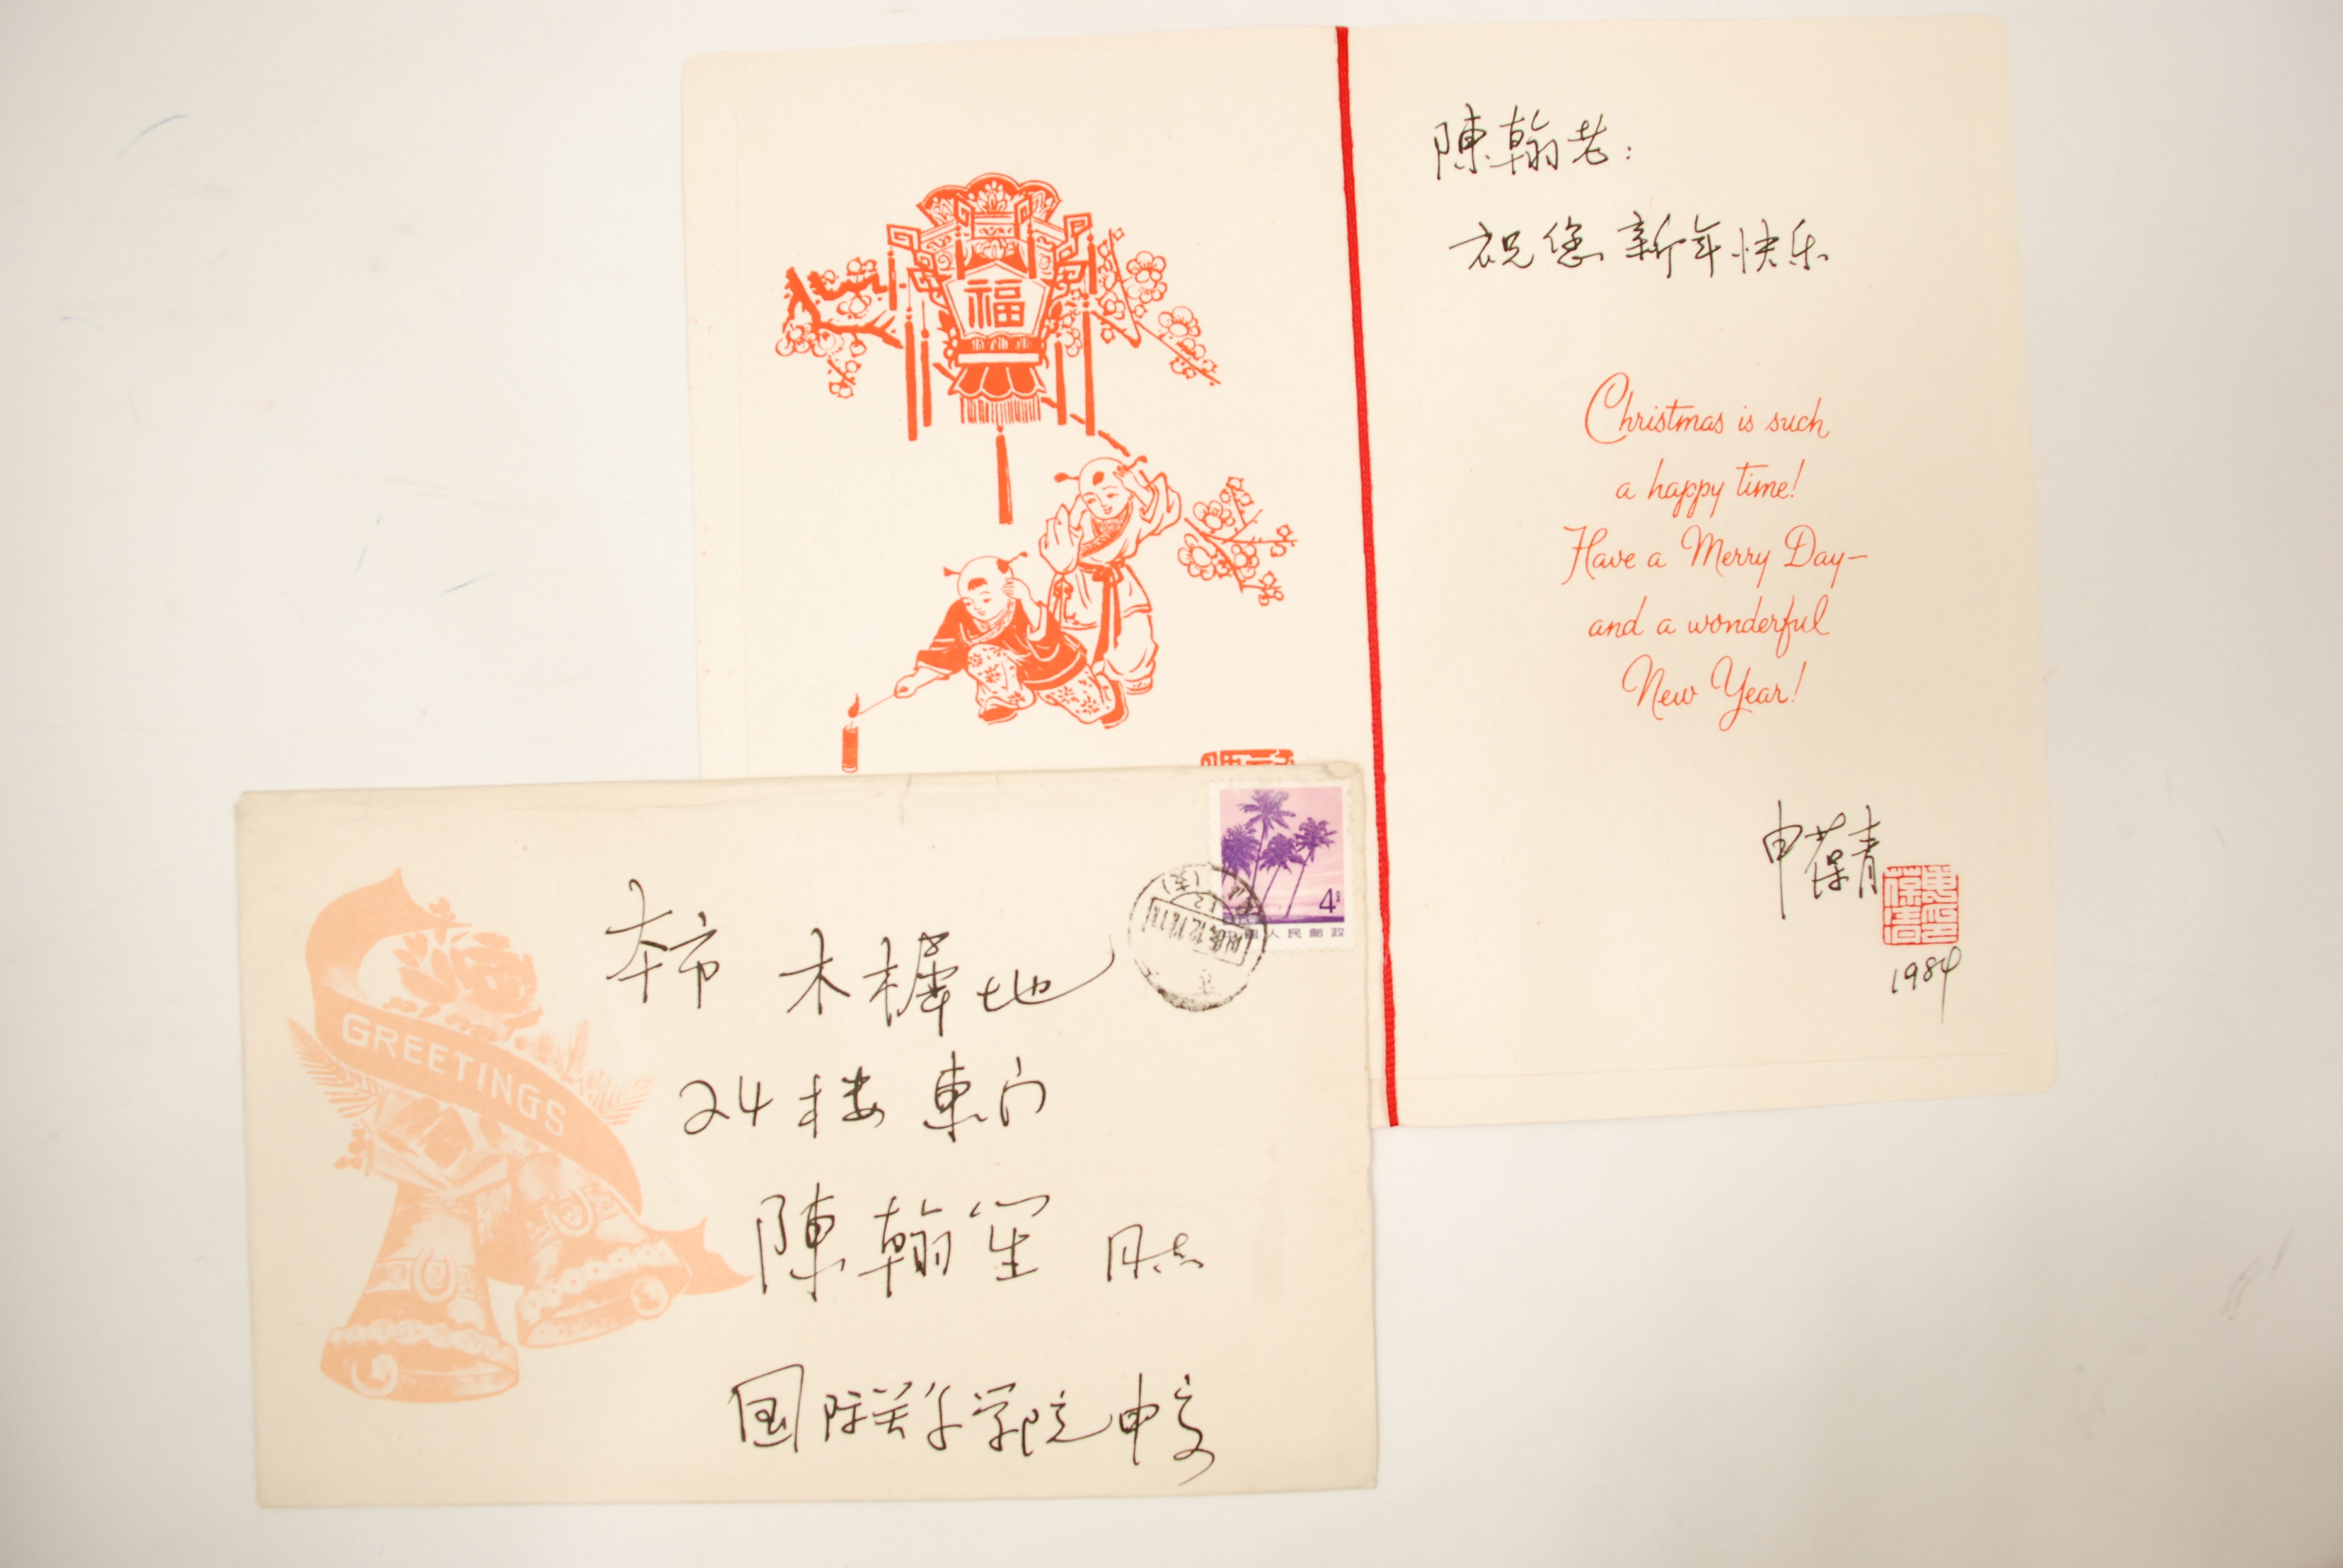 福
陳翰老：
祝您新年快乐
Christmas is such
a happy time!
Have a Merry Day—
and a wonderful
New Year!
申葆青
1984
GREETINGS
4
人民邮政
本市 木樨地
24楼 東门
陳翰笙 同志
国际关系学院申寄